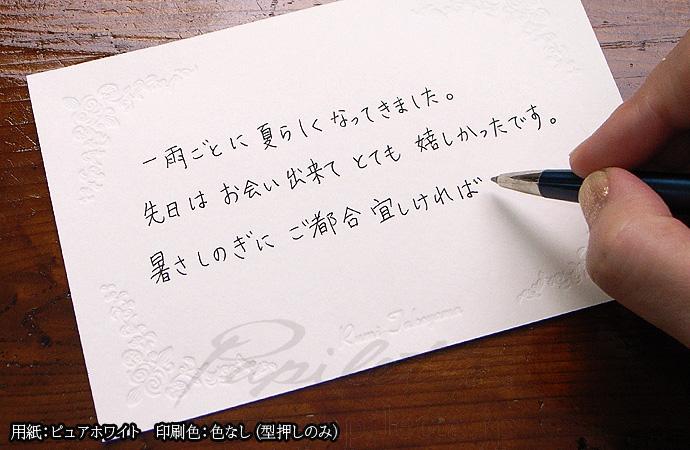 一雨ごとに 夏らしく なってきました。
先日は お会い 出来て とても 嬉しかったです。
暑さしのぎに ご都合 宜しければ
Kumi Takayama
Papilo
用紙：ピュアホワイト　印刷色：色なし（型押しのみ）